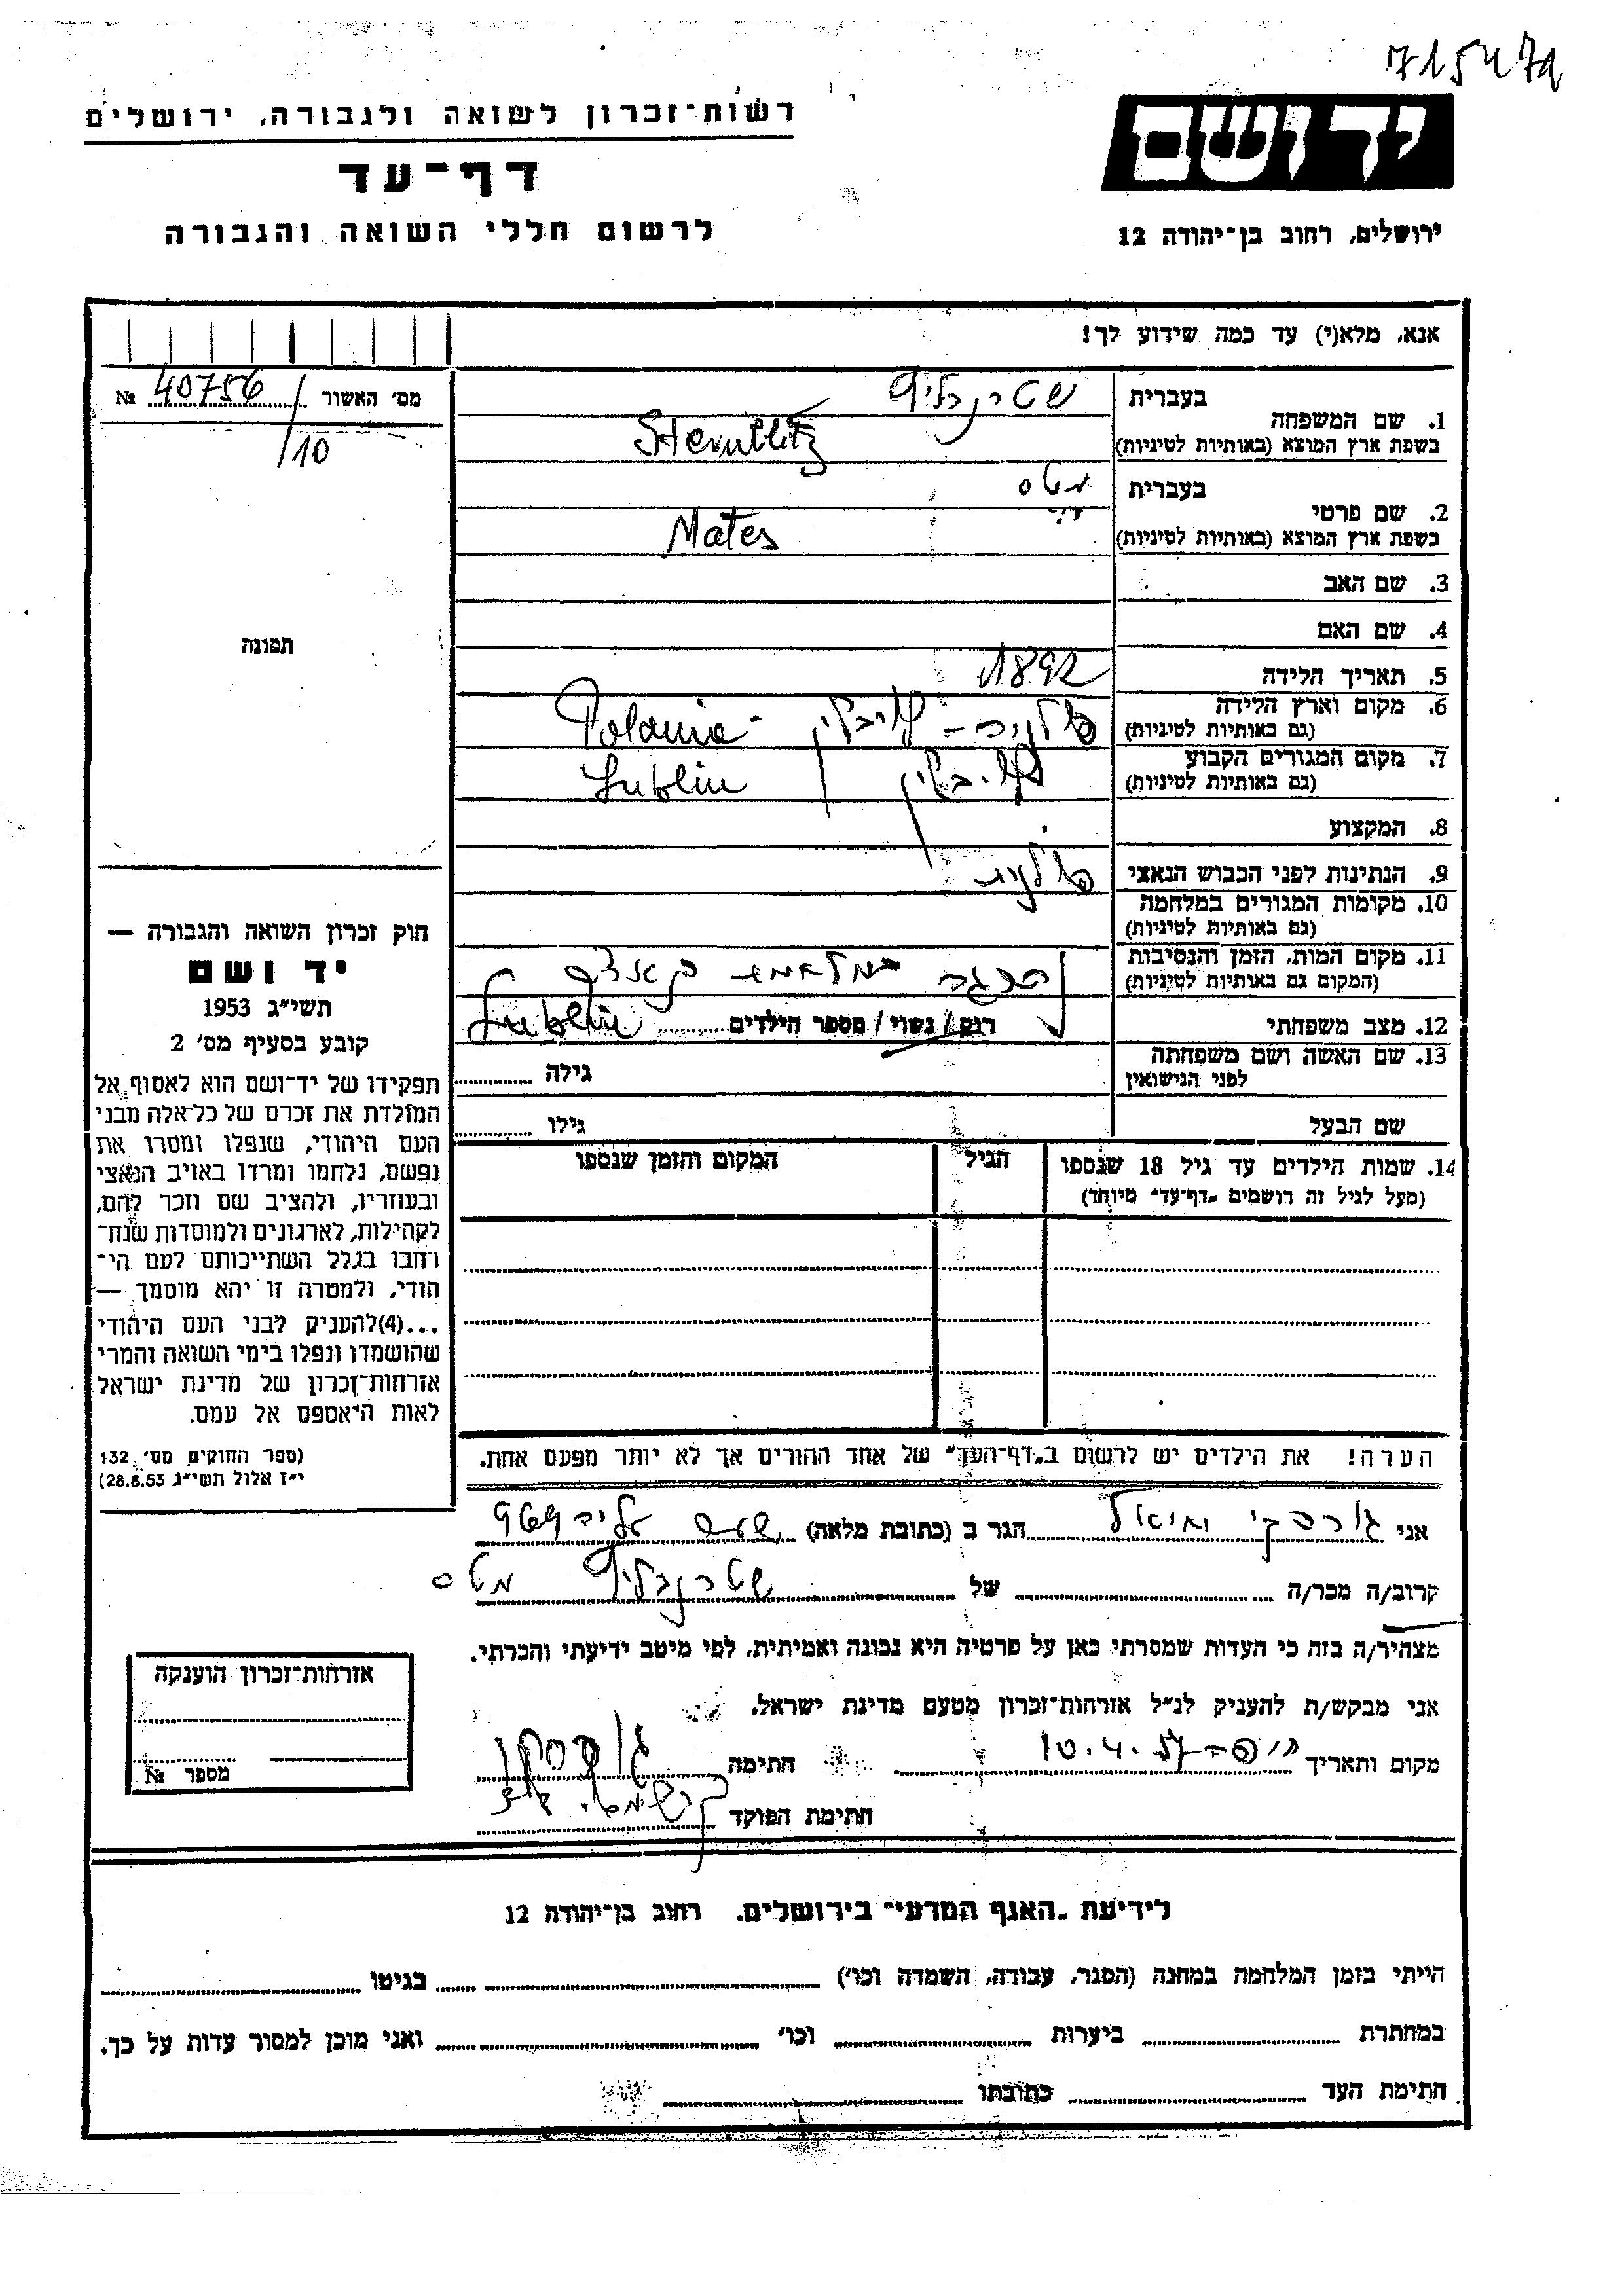 715479
רשות־זכרון לשואה ולגבורה, ירושלים
ידושם
דף־עד
לרשום חללי השואה והגבורה
ירושלים, רחוב בן־יהודה 12
אנא, מלא(י) עד כמה שידוע לך!
מס׳ האשור № 40756/10
1. שם המשפחה
בעברית שטרנבליץ
בשפת ארץ המוצא (באותיות לטיניות) Sternblitz
2. שם פרטי
בעברית מטס
בשפת ארץ המוצא (באותיות לטיניות) Mates
3. שם האב
4. שם האם
תמונה
5. תאריך הלידה 1892
6. מקום וארץ הלידה
(גם באותיות לטיניות) פולניה - לובלין Polania -
7. מקום המגורים הקבוע
(גם באותיות לטיניות) לובלין Lublin
8. המקצוע
9. הנתינות לפני הכבוש הנאצי פולנית
10. מקומות המגורים במלחמה
(גם באותיות לטיניות)
11. מקום המות, הזמן והנסיבות
(המקום גם באותיות לטיניות) נהרגה במלחמה Lublin
12. מצב משפחתי רווק / נשוי / מספר הילדים
13. שם האשה ושם משפחתה
לפני הנישואין גילה
שם הבעל גילו
14. שמות הילדים עד גיל 18 שנספו
(מעל לגיל זה רושמים „דף־עד״ מיוחד)
הגיל
המקום והזמן שנספו
הערה! את הילדים יש לרשום ב„דף־העד״ של אחד ההורים אך לא יותר מפעם אחת.
חוק זכרון השואה והגבורה —
יד ושם
תשי״ג 1953
קובע בסעיף מס׳ 2
תפקידו של יד־ושם הוא לאסוף אל
המולדת את זכרם של כל־אלה מבני
העם היהודי, שנפלו ומסרו את
נפשם, נלחמו ומרדו באויב הנאצי
ובעוזריו, ולהציב שם וזכר להם,
לקהילות, לארגונים ולמוסדות שנח־
רחבו בגלל השתייכותם לעם הי־
הודי, ולמטרה זו יהא מוסמך —
...(4)להעניק לבני העם היהודי
שהושמדו ונפלו בימי השואה והמרי
אזרחות־זכרון של מדינת ישראל
לאות היאספם אל עמם.
(ספר החוקים מס׳ 132,
י״ז אלול תשי״ג 28.8.53)
אני הגר ב (כתובת מלאה)
קרוב/ה מכר/ה של שטרנבליץ מטס
מצהיר/ה בזה כי העדות שמסרתי כאן על פרטיה היא נכונה ואמיתית, לפי מיטב ידיעתי והכרתי.
אני מבקש/ת להעניק לנ״ל אזרחות־זכרון מטעם מדינת ישראל.
מקום ותאריך חיפה חתימה
חתימת הפוקד
אזרחות־זכרון הוענקה
מספר №
לידיעת „האגף המדעי״ בירושלים, רחוב בן־יהודה 12
הייתי בזמן המלחמה במחנה (הסגר, עבודה, השמדה וכו׳) בגיטו
במחתרת ביערות וכו׳ ואני מוכן למסור עדות על כך.
חתימת העד כתובתו